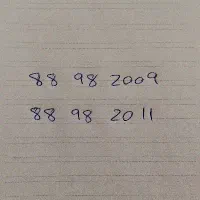 88 98 2009
88 98 2011